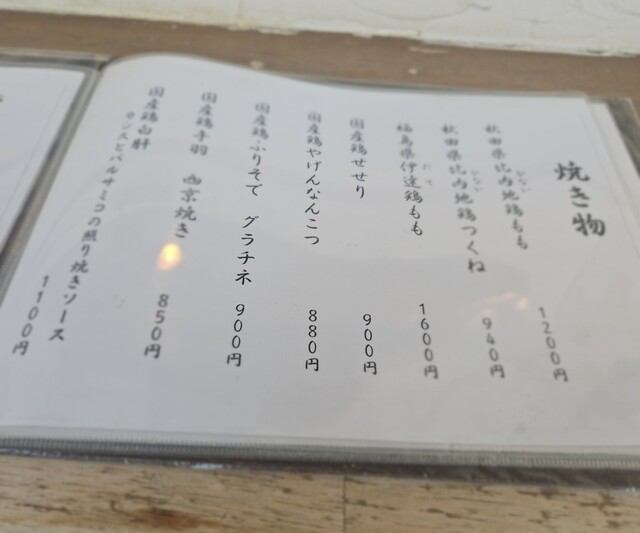 焼き物
秋田県比内地鶏もも 1200円
ひない
秋田県比内地鶏つくね 940円
ひない
福島県伊達鶏もも 1600円
だて
国産鶏せせり 900円
国産鶏やげんなんこつ 880円
国産鶏ふりそで グラチネ 900円
国産鶏手羽 西京焼き 850円
国産鶏白肝
カシスとバルサミコの照り焼きソース 1100円